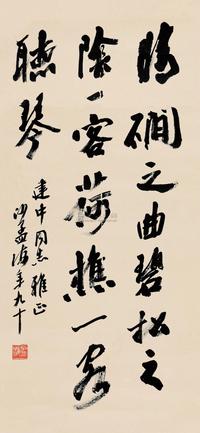 晴磵之曲碧松之
陰一客荷樵一客
聽琴
建中同志雅正
沙孟海年九十